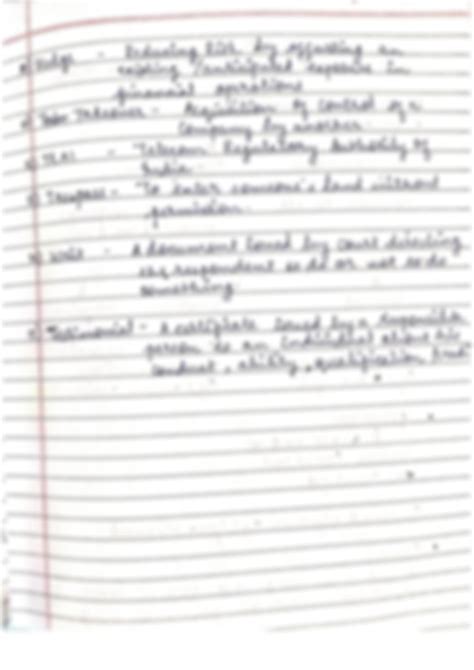 Hedge - Reducing Risk by offsetting an
existing / anticipated exposure in
financial operations
Takeover - Acquisition of control of a
Company by another
TRAI - Telecom Regulatory Authority of
India
Trespass - To enter someone's land without
permission.
Writ - A document issued by court directing
the respondent to do or not to do
something
Testimonial - A certificate issued by a responsible
person to an individual about his
conduct, ability, qualification